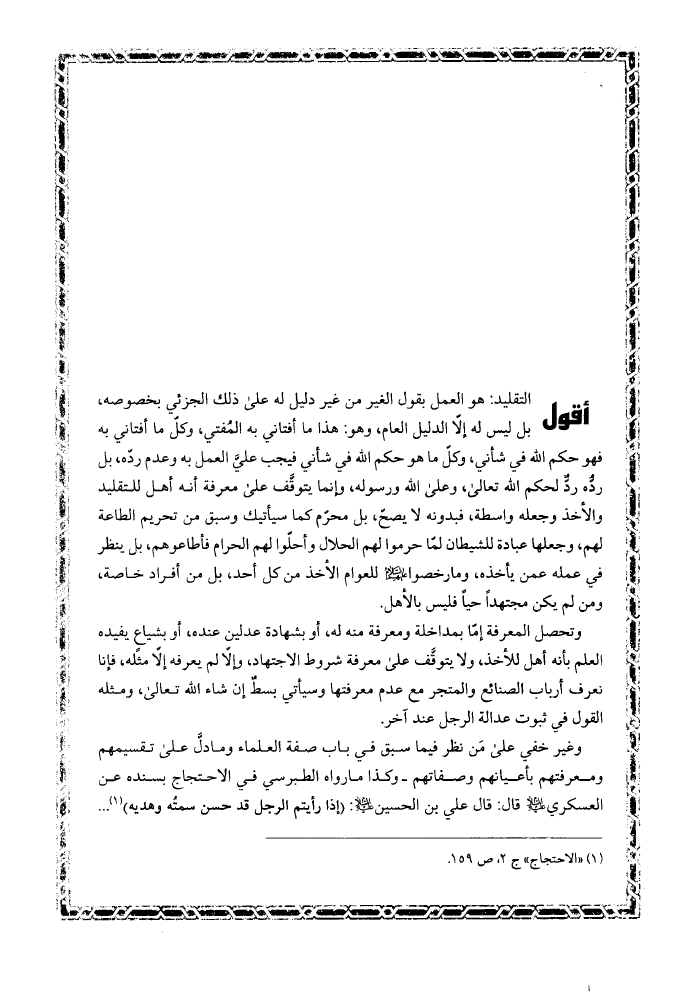 أقول التقليد: هو العمل بقول الغير من غير دليل له علىٰ ذلك الجزئي بخصوصه،
بل ليس له إلّا الدليل العام، وهو: هذا ما أفتاني به المُفتي، وكلّ ما أفتاني به
فهو حكم الله في شأني، وكلّ ما هو حكم الله في شأني فيجب عليَّ العمل به وعدم ردّه، بل
ردُّه ردٌّ لحكم الله تعالىٰ، وعلىٰ الله ورسوله، وإنما يتوقَّف علىٰ معرفة أنه أهل للتقليد
والأخذ وجعله واسطة، فبدونه لا يصحّ، بل محرّم كما سيأتيك وسبق من تحريم الطاعة
لهم، وجعلها عبادة للشيطان لمّا حرموا لهم الحلال وأحلّوا لهم الحرام فأطاعوهم، بل ينظر
في عمله عمن يأخذه، ومارخصوا للعوام الأخذ من كل أحد، بل من أفراد خاصة،
ومن لم يكن مجتهداً حياً فليس بالأهل.
وتحصل المعرفة إمّا بمداخلة ومعرفة منه له، أو بشهادة عدلين عنده، أو بشياع يفيده
العلم بأنه أهل للأخذ، ولا يتوقَّف علىٰ معرفة شروط الاجتهاد، وإلّا لم يعرفه إلّا مثله، فإنا
نعرف أرباب الصنائع والمتجر مع عدم معرفتها وسيأتي بسطٌ إن شاء الله تعالىٰ، ومثله
القول في ثبوت عدالة الرجل عند آخر.
وغير خفي علىٰ مَن نظر فيما سبق في باب صفة العلماء ومادلَّ علىٰ تقسيمهم
ومعرفتهم بأعيانهم وصفاتهم ـ وكذا مارواه الطبرسي في الاحتجاج بسنده عن
العسكري قال: قال علي بن الحسين: (إذا رأيتم الرجل قد حسن سمتُه وهديه)(١)...
(١) «الاحتجاج» ج ٢، ص ١٥٩.